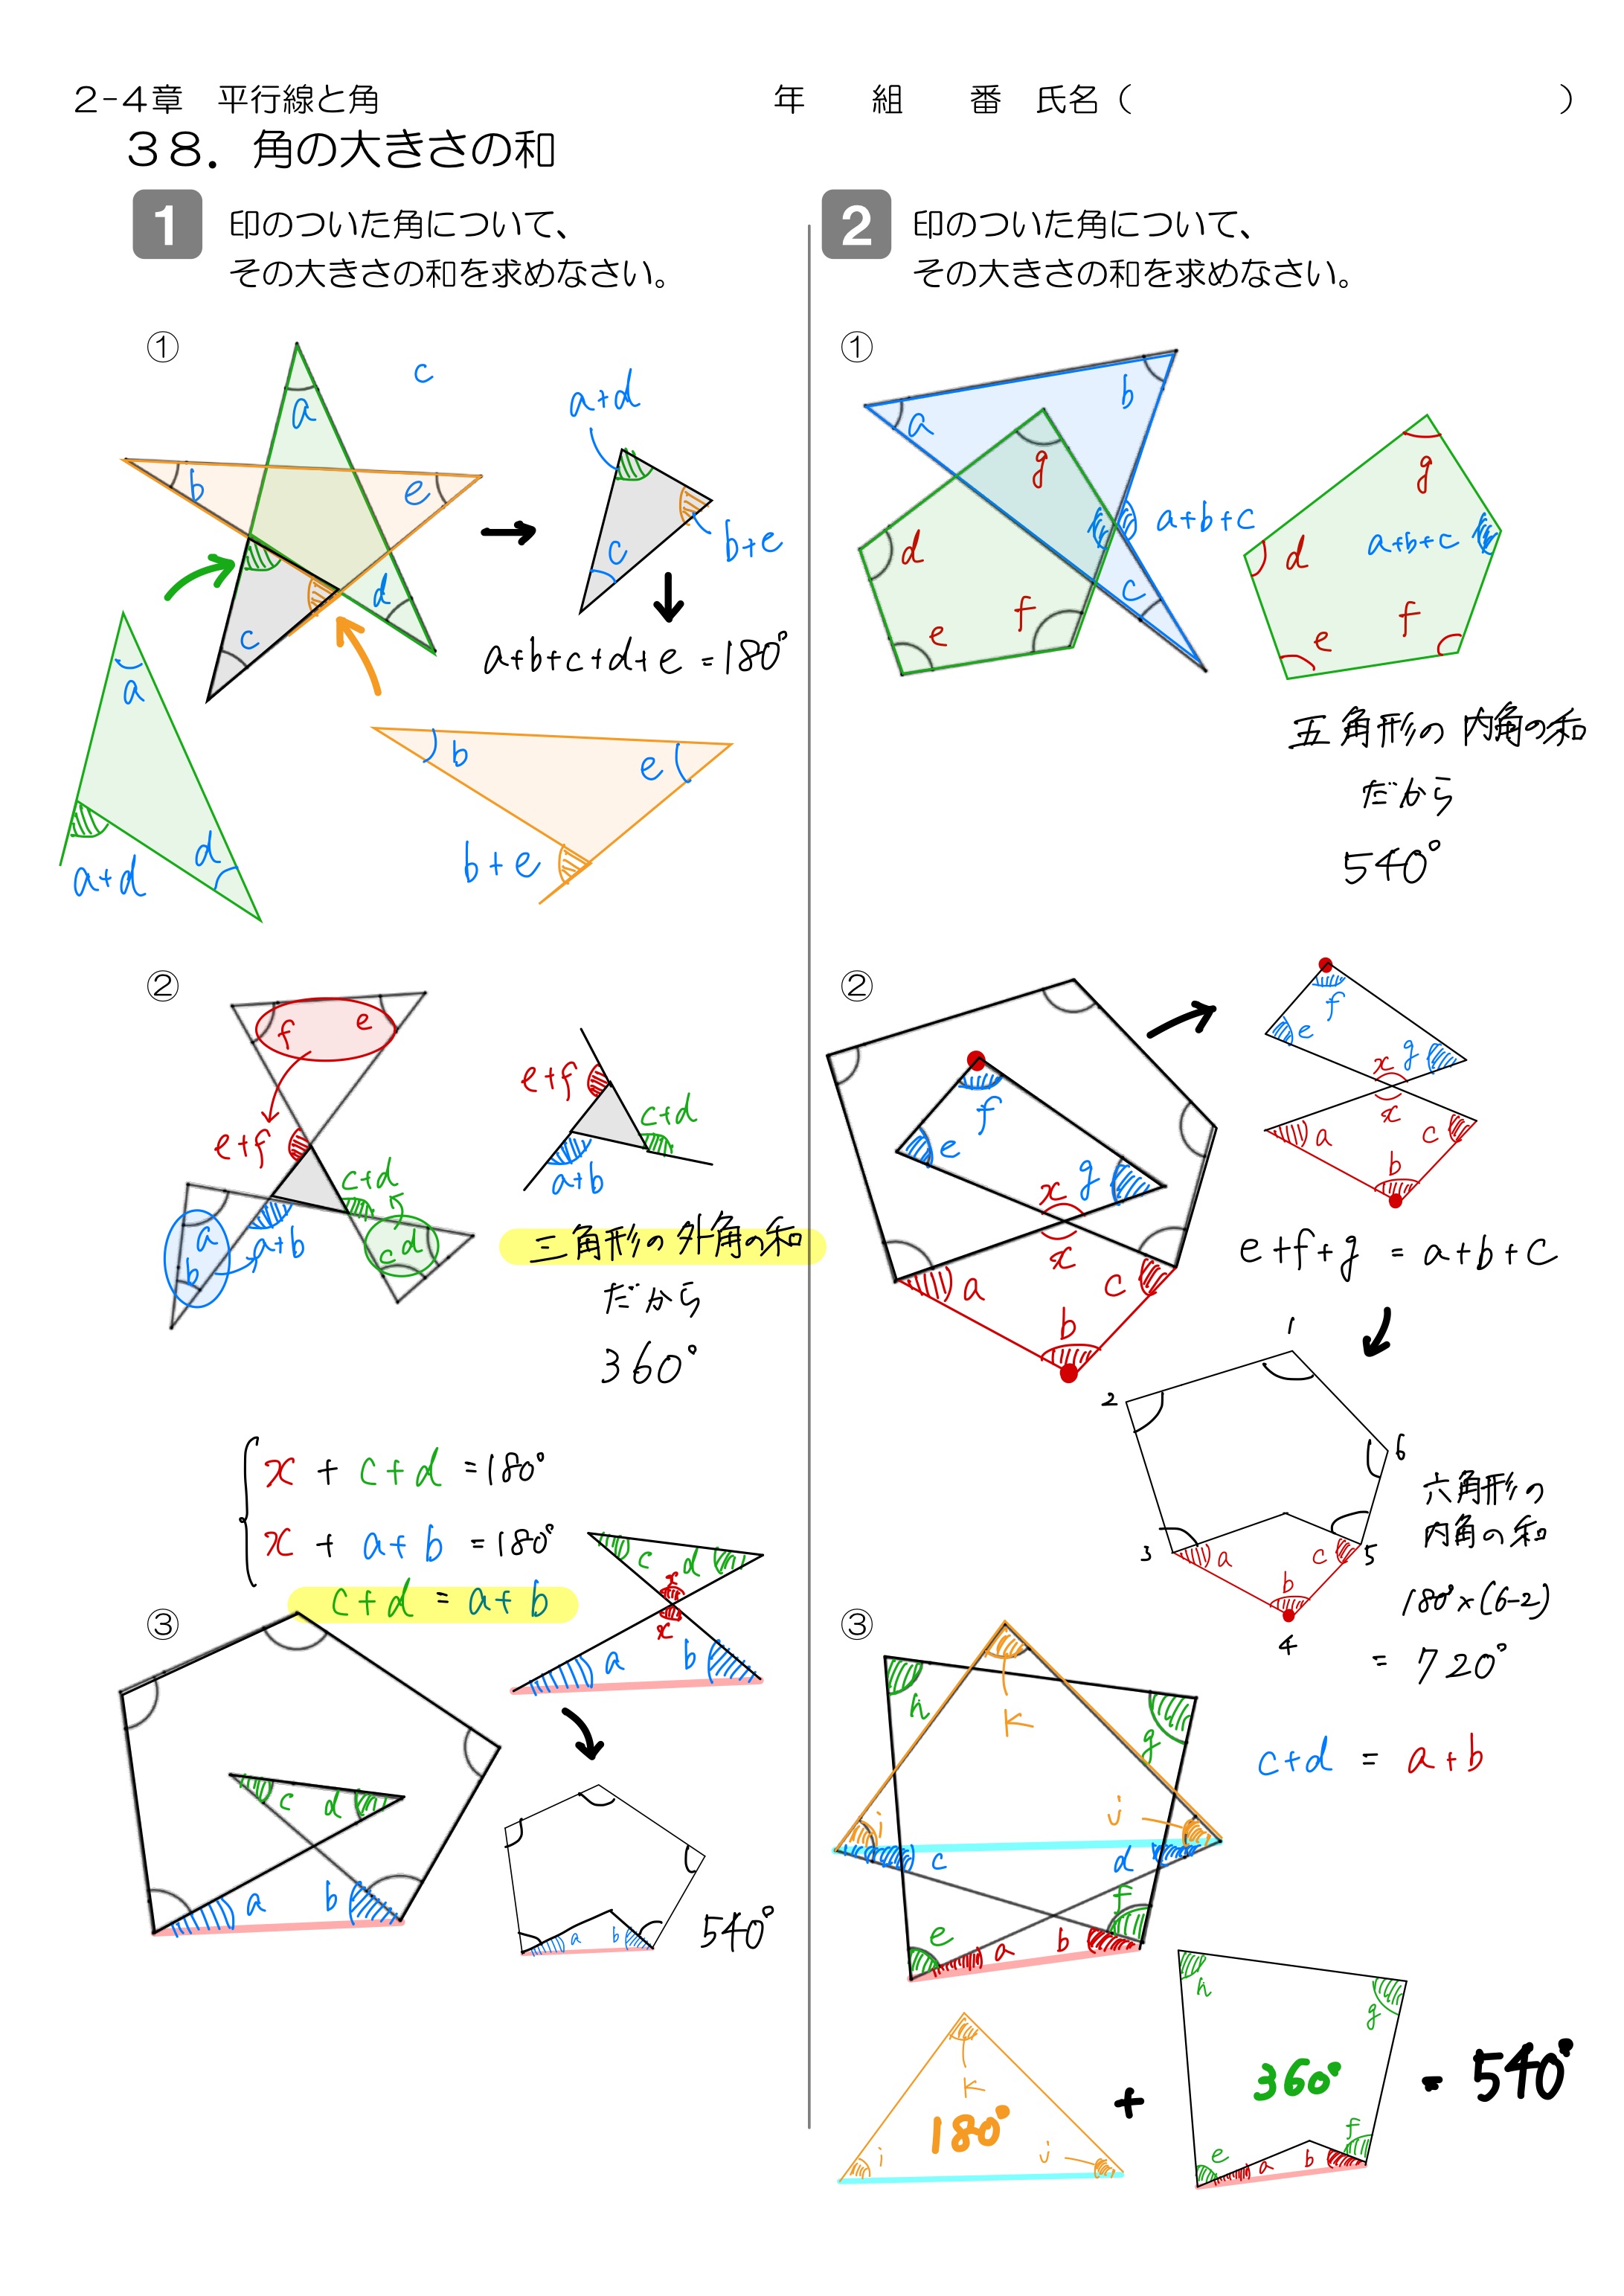 2-4章　平行線と角　　年　　組　　番　氏名（　　　）
38．角の大きさの和
1 印のついた角について、
その大きさの和を求めなさい。
①
c
a
b
e
d
c
a+d
c
b+e
a+b+c+d+e=180°
a
d
a+d
b
e
b+e
②
f
e
e+f
c+d
a
b
a+b
c
d
e+f
c+d
a+b
三角形の外角の和
だから
360°
x + c+d =180°
x + a+b =180°
c+d = a+b
c
d
x
x
a
b
③
c
d
a
b
a
b
540°
2 印のついた角について、
その大きさの和を求めなさい。
①
b
a
g
a+b+c
d
c
f
e
g
d
a+b+c
f
e
五角形の内角の和
だから
540°
②
f
e
g
x
x
a
c
b
f
e
g
x
x
a
c
b
e+f+g = a+b+c
1
2
6
3
5
a
c
b
4
六角形の
内角の和
180°×(6-2)
= 720°
③
h
k
g
i
j
c
d
f
e
a
b
c+d = a+b
k
180°
i
j
+
h
g
360°
f
e
a
b
= 540°